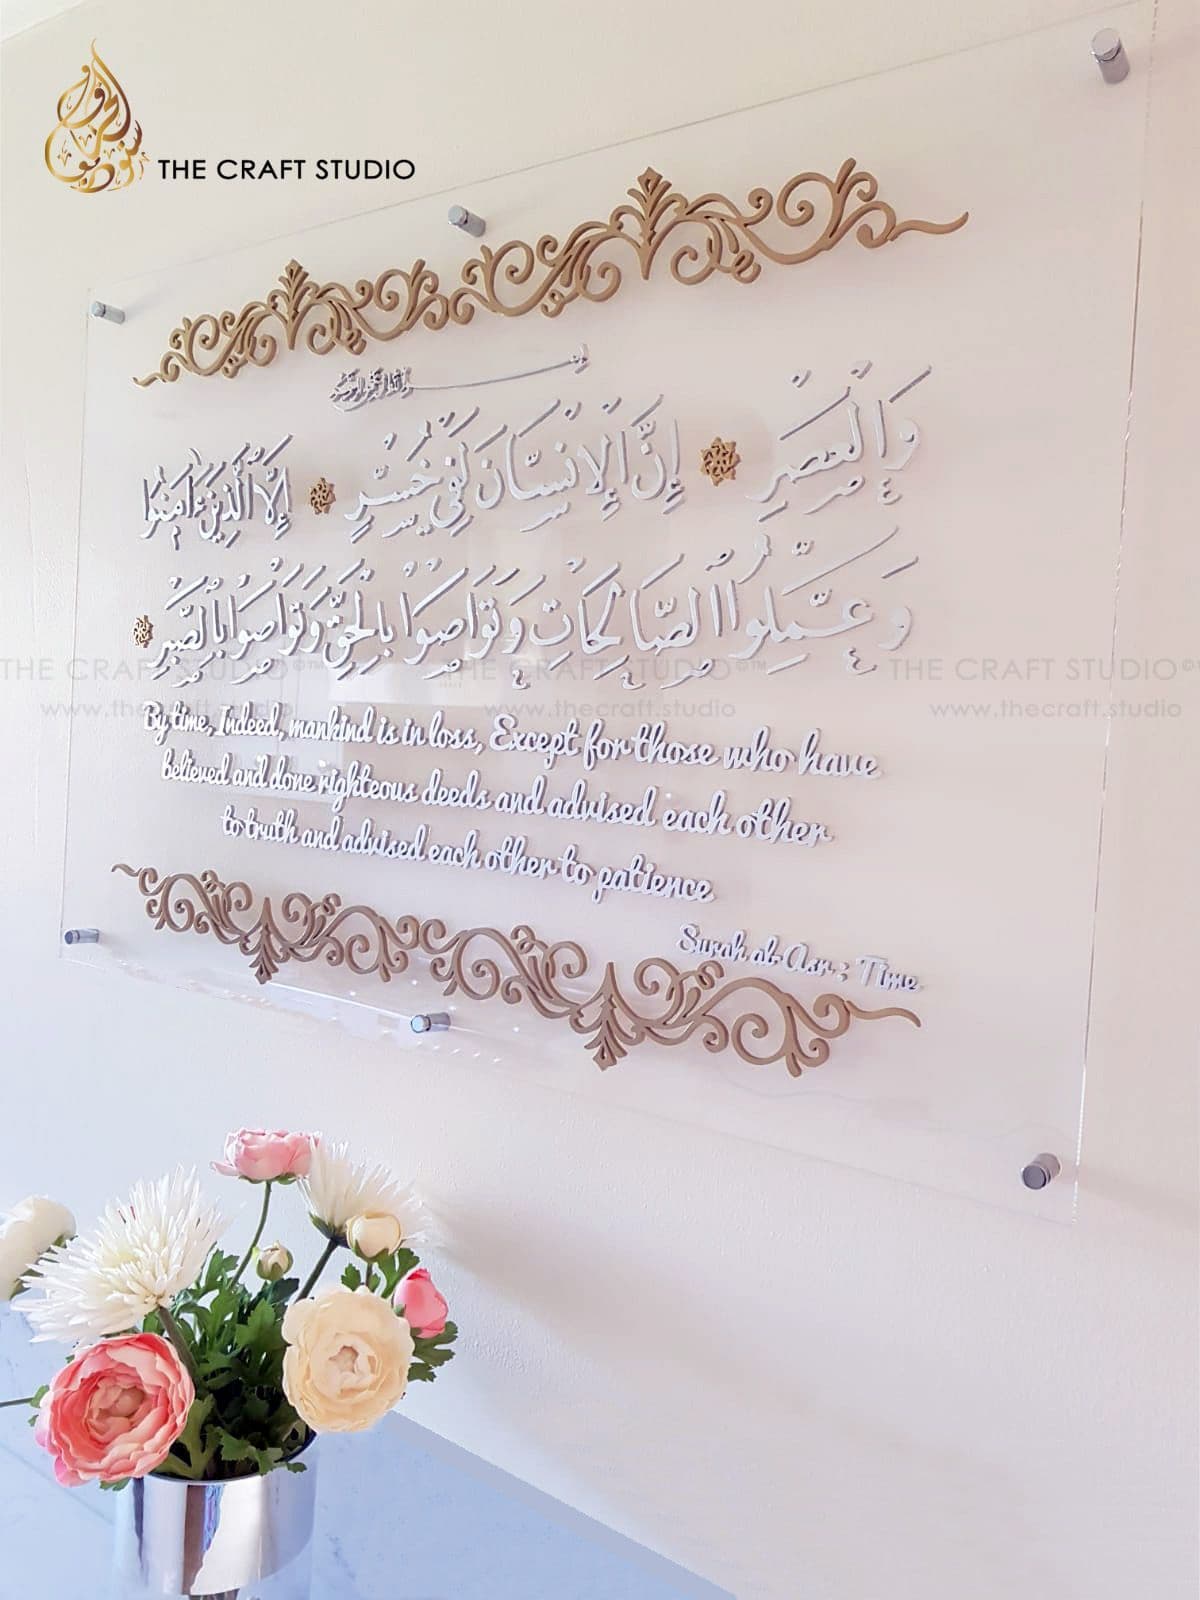 THE CRAFT STUDIO
وَالْعَصْرِ إِنَّ الْإِنسَانَ لَفِي خُسْرٍ إِلَّا الَّذِينَ ءَامَنُوا
وَعَمِلُوا الصَّالِحَاتِ وَتَوَاصَوْا بِالْحَقِّ وَتَوَاصَوْا بِالصَّبْرِ
THE CRAFT STUDIO THE CRAFT STUDIO©™ THE CRAFT STUDIO©™
www.thecraft.studio www.thecraft.studio www.thecraft.studio
By time, Indeed, mankind is in loss, Except for those who have
believed and done righteous deeds and advised each other
to truth and advised each other to patience
Surah al-Asr : Time